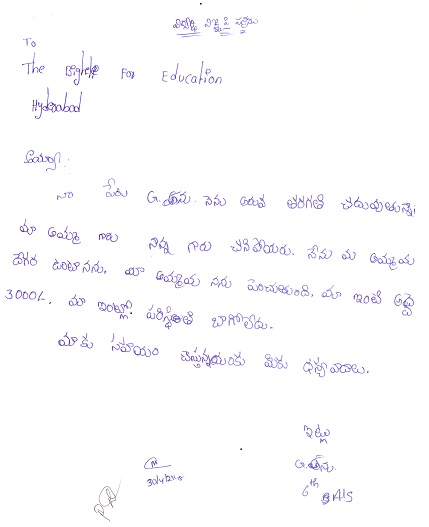 To
The       For Education
Hyderabad
అయ్యా:
నా పేరు G.     నేను ఆరవ తరగతి చదువుతున్నా
మా అమ్మ గారు నాన్న గారు చనిపోయరు. నేను మ అమ్మమ
దగర ఉంటానను. మా అమ్మమ నను పెంచుతుంది. మా ఇంటి అద్దె
3000/-. మా ఇంట్లో పరిస్థితి బాగోలేదు.
మాకు సహాయం చేస్తున్నయకు మీకు ధన్యవాదాలు.
ఇట్లు
G.
6th